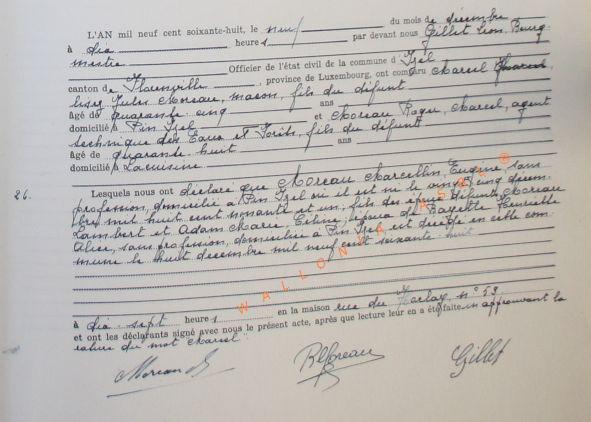 L'AN mil neuf cent soixante-huit, le neuf du mois de décembre
à dix heures par devant nous Gillet Léon, Bourg-
mestre Officier de l'état civil de la commune d'Izel
canton de Florenville, province de Luxembourg, ont comparu Marcel
Jules Moreau, maçon, fils du défunt
âgé de quarante cinq ans
domicilié à Pin Izel et Moreau Roger, Marcel, agent
technique des Eaux et Forêts, fils du défunt
âgé de quarante huit ans
domicilié à Lacuisine
26. Lesquels nous ont déclaré que Moreau Marcellin, Eugène, sans
profession, domicilié à Pin Izel où il est né le vingt cinq décem-
bre mil huit cent nonante et un, fils des époux défunts Moreau
Lambert et Adam Marie, Céline, époux de
Alice, sans profession, domiciliée à Pin Izel est décédé en cette com-
mune le huit décembre mil neuf cent soixante-huit
à dix-sept heures en la maison rue du n° 59.
et ont les déclarants signé avec nous le présent acte, après que lecture leur en a été faite en approuvant la
du mot Marcel"
Moreau RMoreau Gillet
WALLONIA